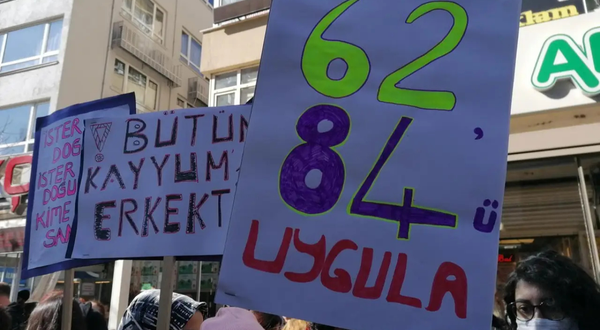 İSTER
DOĞ
İSTER
DOĞU
KİME
SAN
! BÜTÜN
KAYYUM
ERKEKT
62
84'ü
UYGULA